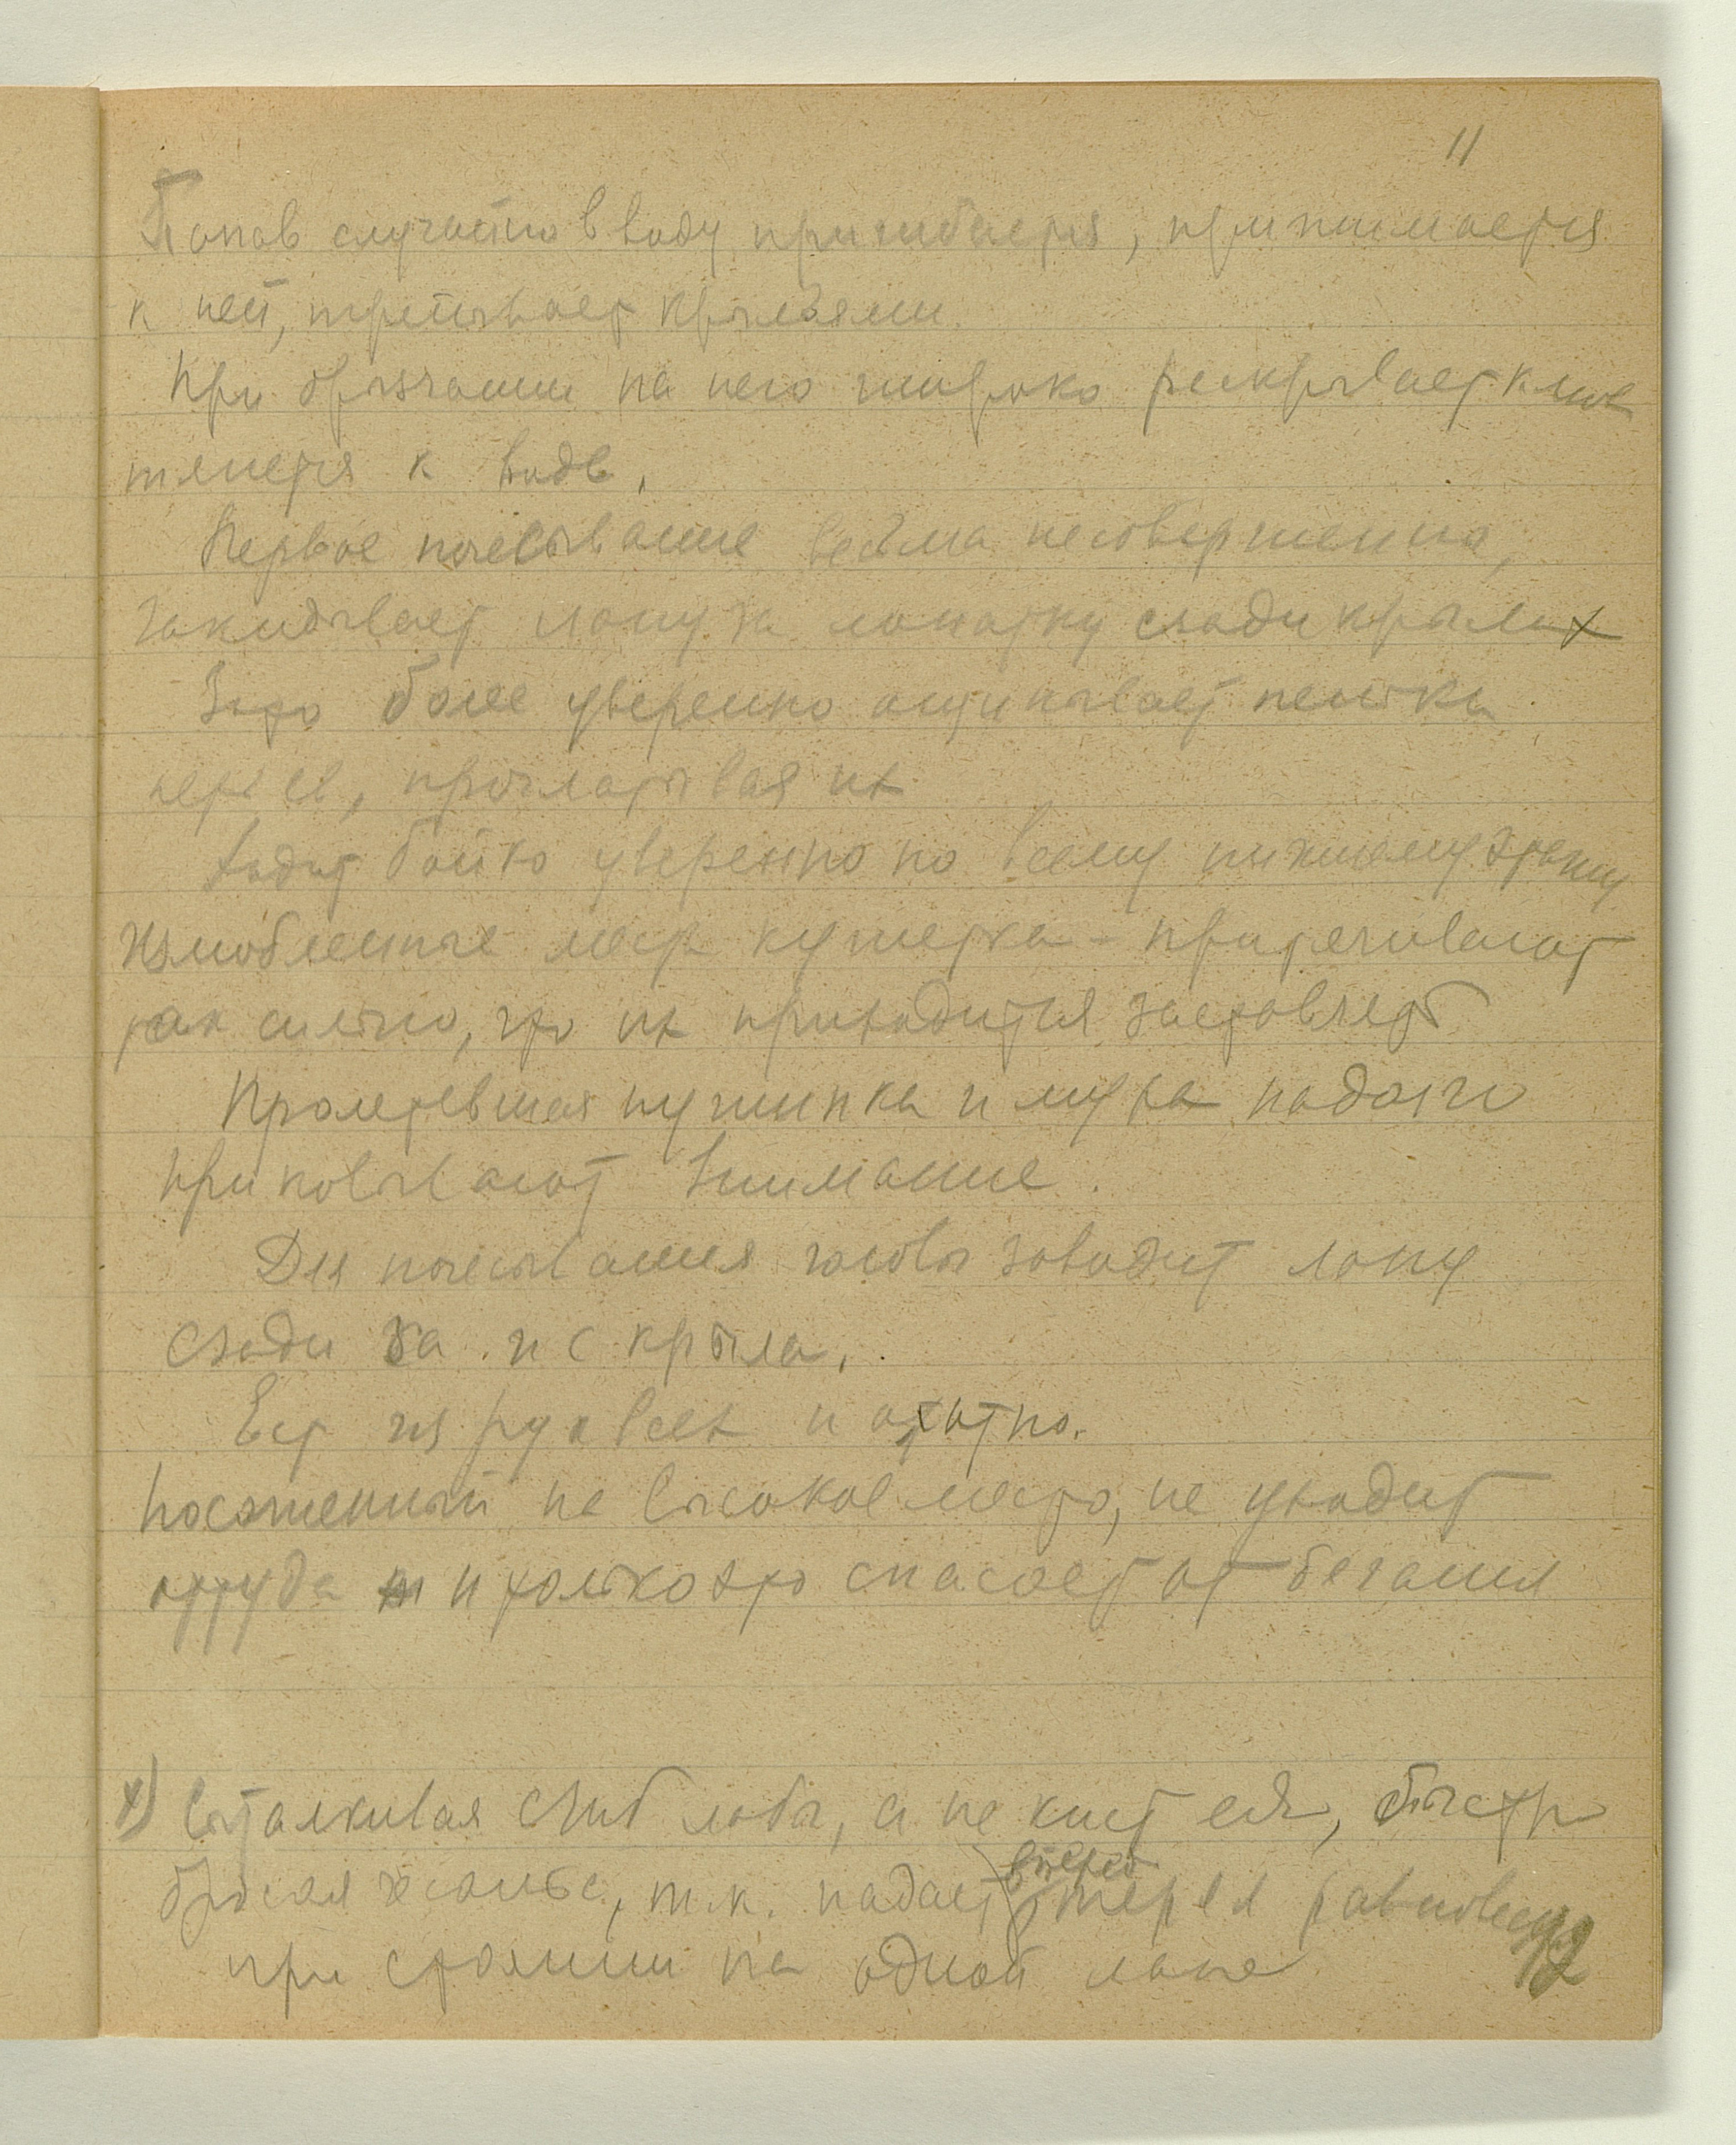 11
Попав случайно в воду пригибается, принимается
к ней, трепывает крыльями.
При брызгании на него широко раскрывает клюв
тянется к воде.
Первое почесывание весьма несовершенно,
закидывает лапу за лопатку сзади крыла x
Зато более уверенно ощипывает пеньки
перьев, проглатывая их
Ходит бойко уверенно по всему нижнему этажу
Излюбленные места кушетка - притягивают
так сильно, что их приходится заставлять
Пролетевшая пушинка и муха надолго
приковывают внимание.
Для почесывания головы заводит лапу
сзади за и с крыла.
Ест из рук всех и охотно.
Посаженный на высокое место, не уходит
оттуда и только это спасает от бегания
x) Выталкивая сгиб лапы, а не кисть ея, быстро
бросая чесанье, т.к. падает вперед теряя равновесие
при стоянии на одной лапе
12